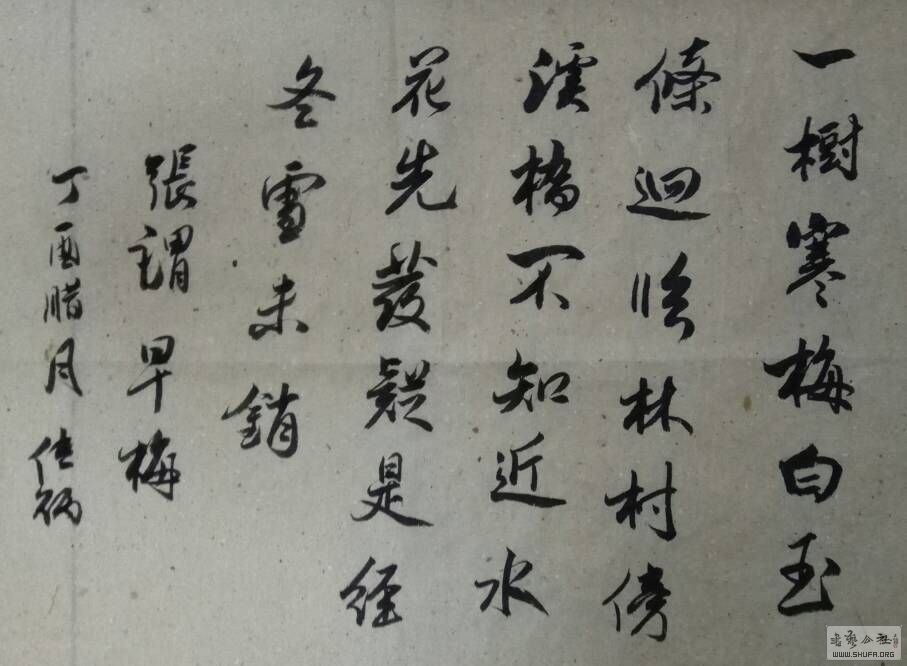 一樹寒梅白玉
條迴临林村傍
溪橋不知近水
花先發疑是經
冬雪未銷
張謂早梅
丁酉腊月
WWW.SHUFA.ORG